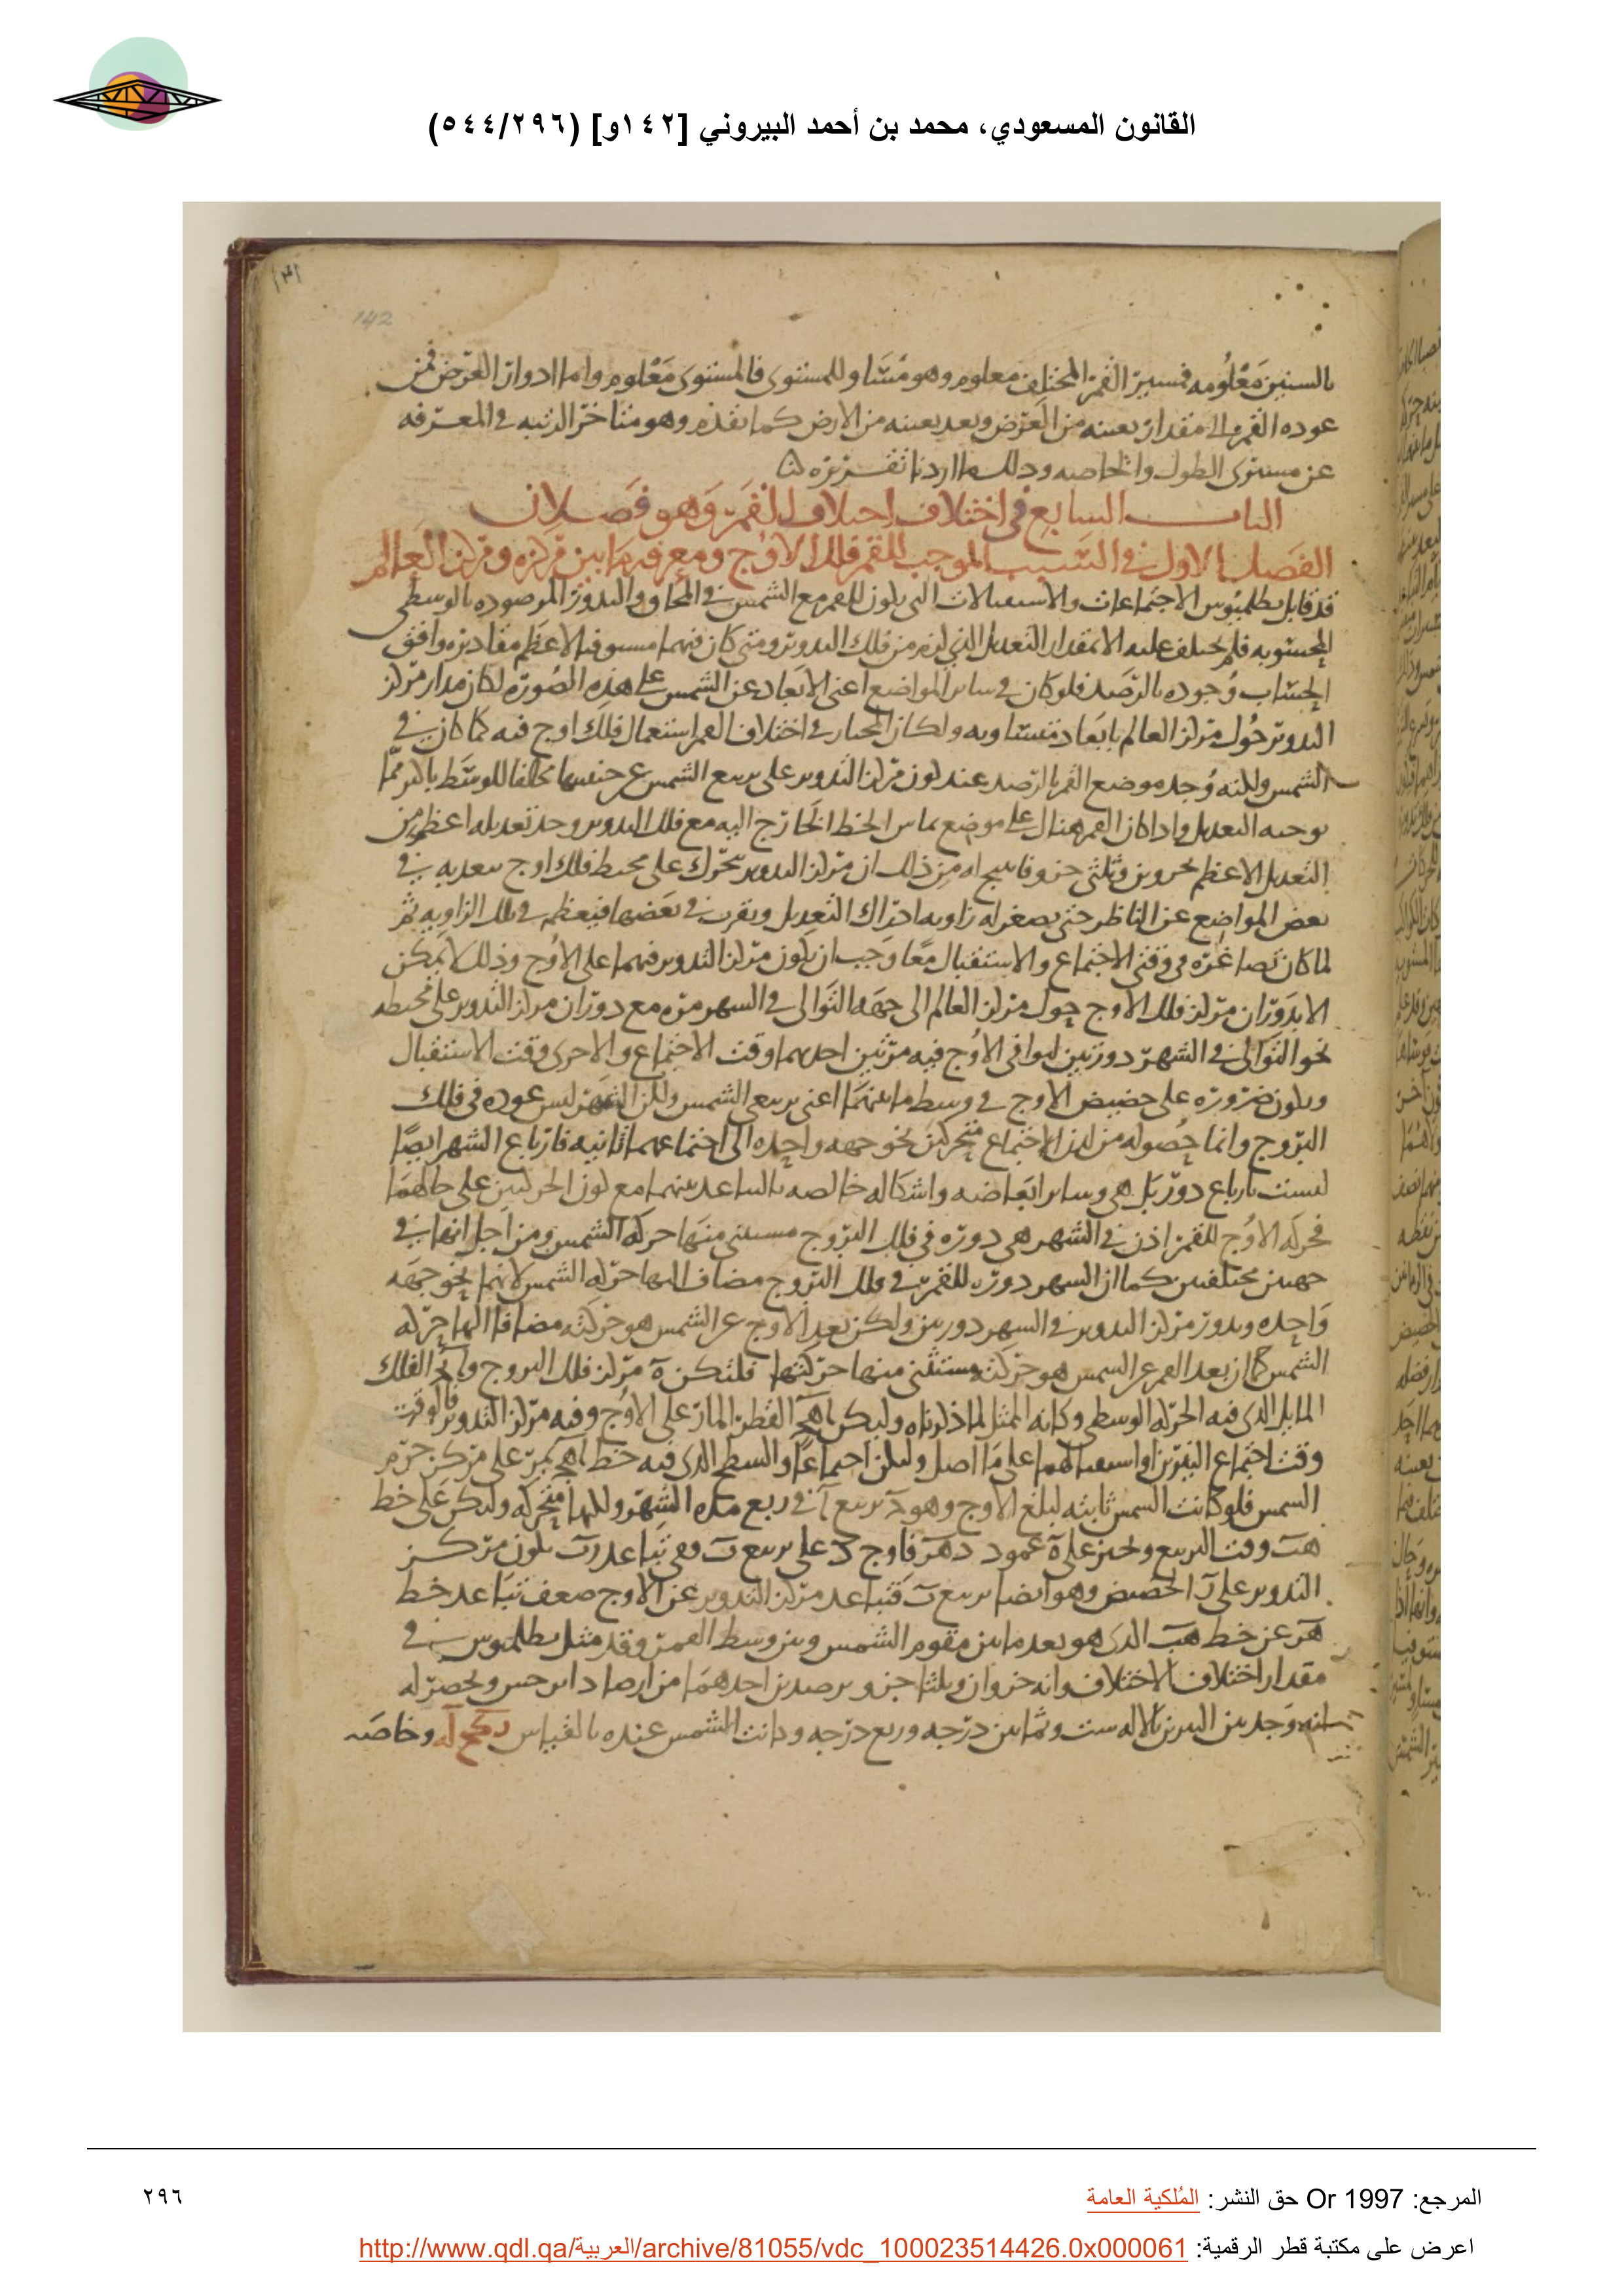 القانون المسعودي، محمد بن أحمد البيروني [١٤٢و] (٥٤٤/٢٩٦)
142
بالسنين معلومه فمسير القمر المختلف معلوم وهو مساو للمستوى فالمستوى معلوم واما ادوار العرض فمن
عوده القمر الى مقدار بعينه من العرض وبعد بعينه من الارض كما تقدم وهو متاخر الرتبه في المعرفه
عن مستوى الطول والخاصه وذلك ما اردنا تقريره
الباب السابع في اختلاف اختلاف القمر وهو فصلان
الفصل الاول في السبب الموجب للقمر فلك الاوج ومعرفه ما بين مركزه ومركز العالم
قد قابل بطلميوس الاجتماعات والاستقبالات التي يكون للقمر مع الشمس في المحاق والبدور المرصوده بالوسطى
المحسوبه فلم يختلف عليه الا بمقدار التعديل الذي لزم من فلك التدوير ومتى كان فيهما مستوفيا لاعظم مقاديره وافق
الحساب وجوده بالرصد فلو كان في ساير المواضع اعني الابعاد عن الشمس على هذه الصوره لكان مدار مركز
التدوير حول مركز العالم بابعاد متساويه ولكان المختار في اختلاف القمر استعمال فلك اوج فيه كما كان في
الشمس ولكنه وجد موضع القمر بالرصد عند كون مركز التدوير على تربيع الشمس عن جنبيها مخالفا للوسط باكثر مما
يوجبه التعديل واذا كان القمر هنالك على موضع تماس الخط الخارج اليه مع فلك التدوير وجد تعديله اعظم من
التعديل الاعظم بجزوين وثلثي جزو فانتج له من ذلك ان مركز التدوير يتحرك على محيط فلك اوج يبعد به في
بعض المواضع عن الناظر حتى يصغر له زاويه ادراك التعديل ويقرب في بعضها فيعظم في تلك الزاويه ثم
لما كان تصاغره في وقتي الاجتماع والاستقبال معا وجب ان يكون مركز التدوير فيهما على الاوج وذلك لا يمكن
الا بدوران مركز فلك الاوج حول مركز العالم الى جهه التوالى في الشهر مره مع دوران مركز التدوير على محيطه
نحو التوالى في الشهر دورتين ليوافي الاوج فيه مرتين احديهما وقت الاجتماع والاخرى وقت الاستقبال
ويكون ضروره على حضيض الاوج في وسط ما بينهما اعني تربيعي الشمس ولكن الشهر ليس عوده في فلك
البروج وانما حصوله من لدن الاجتماع متحركين نحو جهه واحده الى اجتماعهما ثانيه فارباع الشهر ايضا
ليست بارباع دور بل هي وساير ابعاضه واشكاله خالصه بالتباعد بينهما مع كون الحركتين على حالهما
فحركه الاوج للقمر اذن في الشهر هي دوره في فلك البروج مستثنى منها حركه الشمس ومن اجل انها في
جهتين مختلفتين كما ان الشهر دوره للقمر في فلك البروج مضاف اليها حركه الشمس لانهما نحو جهه
واحده ويدور مركز التدوير في الشهر دورتين ولكن بعد الاوج عن الشمس هو حركته مضافا اليها حركه
الشمس كما ان بعد القمر عن الشمس هو حركته مستثنى منها حركتها فلتكن ه مركز فلك البروج و الفلك
المايل الذي فيه الحركه الوسطى وكانه الممثل لما ذكرناه وليكن اهج القطر المار على الاوج وفيه مركز التدوير فالوقت
وقت اجتماع النيرين او استقبالهما على ما اصل وليكن اجتماعا والسطح الذي فيه خط اهج يمر على مركز جرم
الشمس فلو كانت الشمس ثابته لبلغ الاوج وهو د تربيع آ في ربع مده الشهر ولكنها متحركه وليكن على خط
هب وقت التربيع ونخرج على ه عمود دهر فاوج د على تربيع ب وفي تباعد رب يكون مركز
التدوير على ر الحضيض وهو ايضا تربيع ب فتباعد مركز التدوير عن الاوج ضعف تباعد خط
هر عن خط هب الذي هو بعد ما بين مقوم الشمس وبين وسط القمر وقد مثل بطلميوس في
مقدار اختلاف الاختلاف وانه جزوان وثلثا جزو برصدين احدهما من ارصاد ابرخس ويحصر له
انه وجد بين النيرين بالاله ست وثمانين درجه وربع درجه وكانت الشمس عنده بالقياس وخاصه
المرجع: Or 1997 حق النشر: المُلكية العامة
٢٩٦
اعرض على مكتبة قطر الرقمية: http://www.qdl.qa/العربية/archive/81055/vdc_100023514426.0x000061